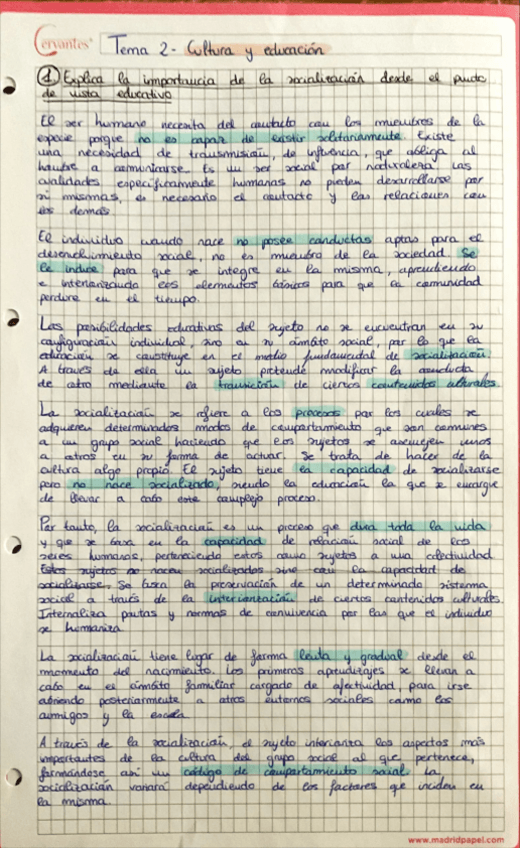 Cervantes
Tema 2 - Cultura y educación
1 Explica la importancia de la socialización desde el punto
de vista educativo
El ser humano necesita del contacto con los miembros de la
especie porque no es capaz de existir solitariamente. Existe
una necesidad de transmisión, de influencia, que obliga al
hombre a comunicarse. Es un ser social por naturaleza. Las
cualidades específicamente humanas no pueden desarrollarse por
si mismas, es necesario el contacto y las relaciones con
los demás.
El individuo cuando nace no posee conductas aptas para el
desenvolvimiento social, no es miembro de la sociedad. Se
le induce para que se integre en la misma, aprendiendo
e interiorizando los elementos básicos para que la comunidad
perdure en el tiempo.
Las posibilidades educativas del sujeto no se encuentran en su
configuración individual, sino en su ámbito social, por lo que la
educación se constituye en el medio fundamental de socialización.
A través de ella un sujeto pretende modificar la conducta
de otro mediante la transmisión de ciertos contenidos culturales.
La socialización se refiere a los procesos por los cuales se
adquieren determinados modos de comportamiento que son comunes
a un grupo social haciendo que los sujetos se asemejen unos
a otros en su forma de actuar. Se trata de hacer de la
cultura algo propio. El sujeto tiene la capacidad de socializarse
pero no nace socializado, siendo la educación la que se encargue
de llevar a cabo este complejo proceso.
Por tanto, la socialización es un proceso que dura toda la vida
y que se basa en la capacidad de relación social de los
seres humanos, perteneciendo estos como sujetos a una colectividad
Estos sujetos no nacen socializados sino con la capacidad de
socializarse. Se busca la preservación de un determinado sistema
social a través de la interiorización de ciertos contenidos culturales.
Internaliza pautas y normas de convivencia por las que el individuo
se humaniza.
La socialización tiene lugar de forma lenta y gradual desde el
momento del nacimiento. Los primeros aprendizajes se llevan a
cabo en el ámbito familiar cargado de afectividad, para irse
abriendo posteriormente a otros entornos sociales como los
amigos y la escuela
A través de la socialización, el sujeto interioriza los aspectos más
importantes de la cultura del grupo social al que pertenece,
formándose así un código de comportamiento social. La
socialización variará dependiendo de los factores que inciden en
la misma.
www.madridpapel.com